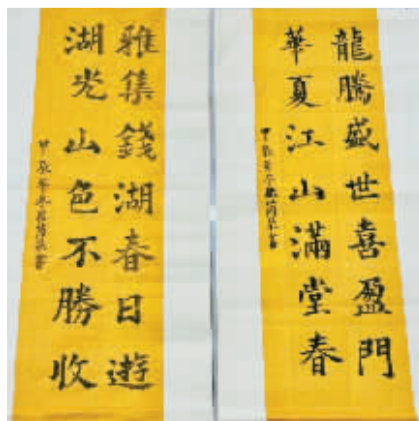 龍騰盛世喜盈門
華夏江山滿堂春
雅集錢湖春日遊
湖光山色不勝收